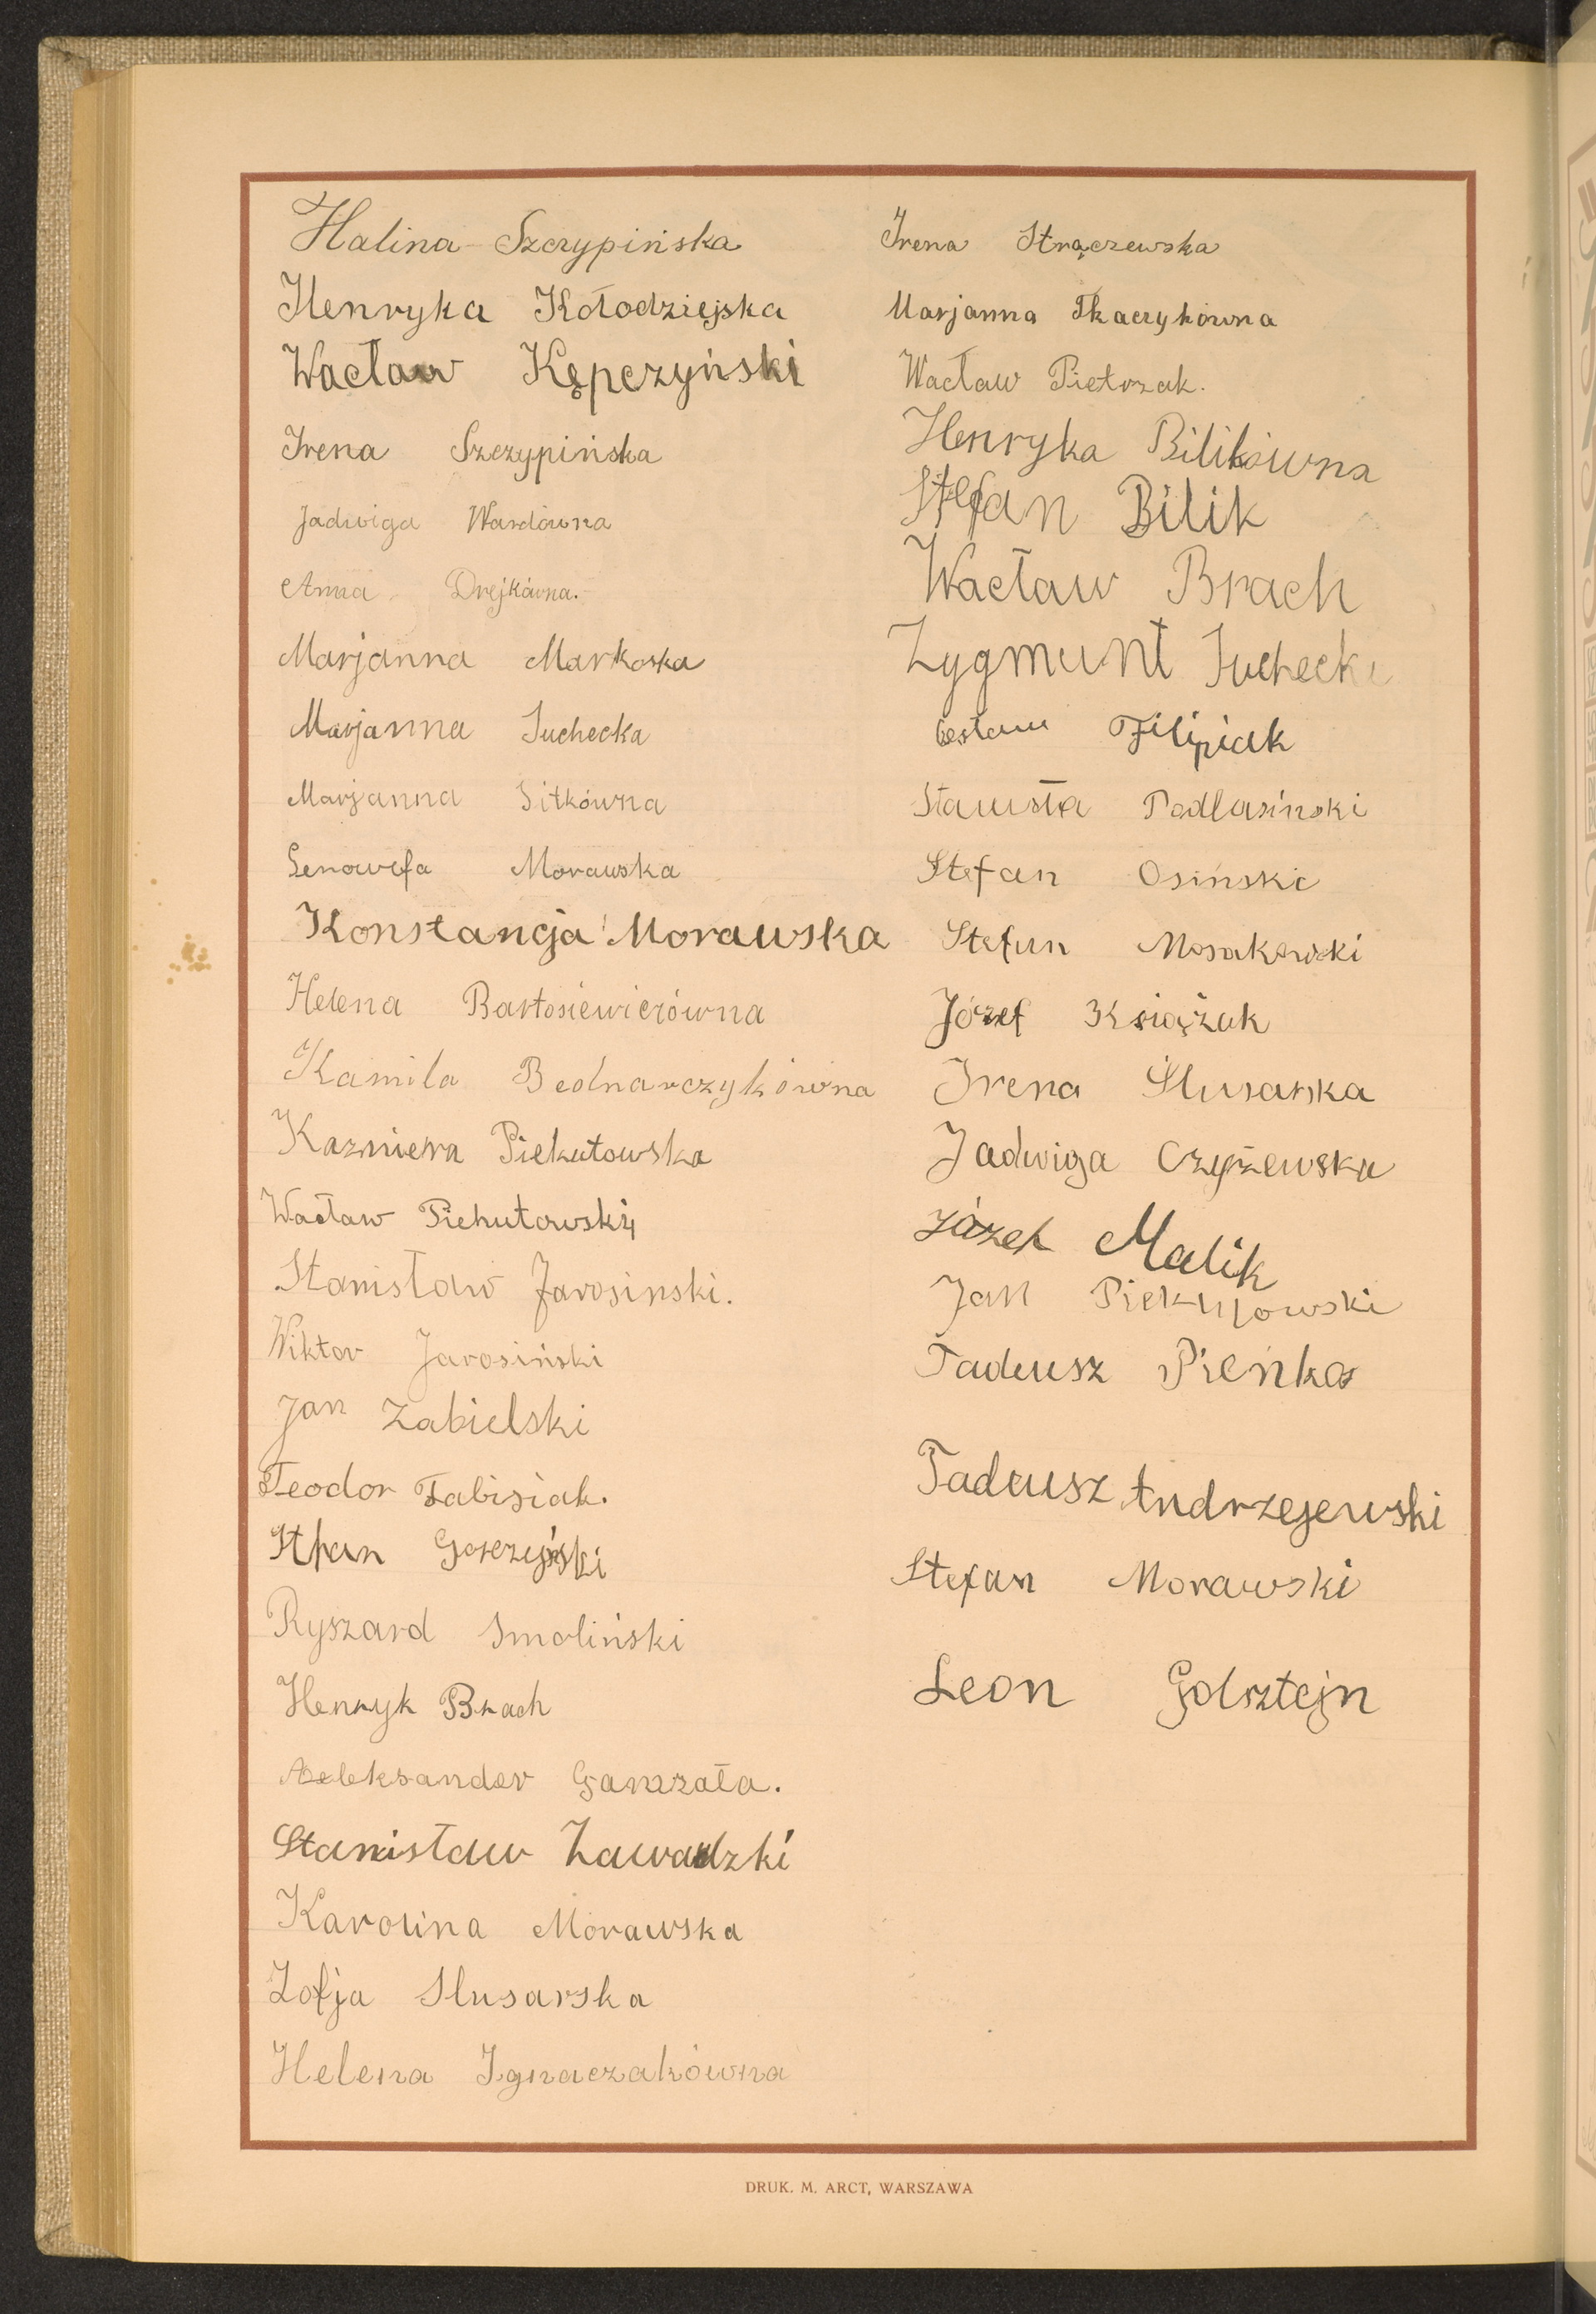 Halina Szczypińska
Henryka Kołodziejska
Wacław Kępczyński
Irena Szczypińska
Jadwiga Wardówna
Anna Drejkówna.
Marjanna Markoska
Marjanna Suchecka
Marjanna Sitkówna
Genowefa Morawska
Konstancja Morawska
Helena Bartosiewiczówna
Kamila Bednarczykówna
Kazmiera Piekutowska
Wacław Piekutowski
Stanisław Jarosinski.
Wiktor Jarosiński
Jan Zabielski
Teodor Fabisiak.
Ryszard Smoliński
Henryk Brach
Stanisław Zawadzki
Karolina Morawska
Zofja Slusarska
Helena Ignaczakówna
Irena Strączewska
Marjanna Tkaczykówna
Wacław Pietrzak.
Henryka Bilikówna
Stefan Bilik
Wacław Brach
Zygmunt Suchecki
Filipiak
Podlasiński
Stefan Osiński
Stefan Mosakowski
Józef Książak
Irena Slusarska
Jadwiga Czyżewska
Józef Malik
Jan Piekutowski
Tadeusz Pieńkos
Tadeusz Andrzejewski
Stefan Morawski
Leon Golsztejn
DRUK. M. ARCT, WARSZAWA